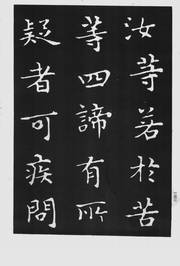 汝等若於苦
等四諦有所
疑者可疾問